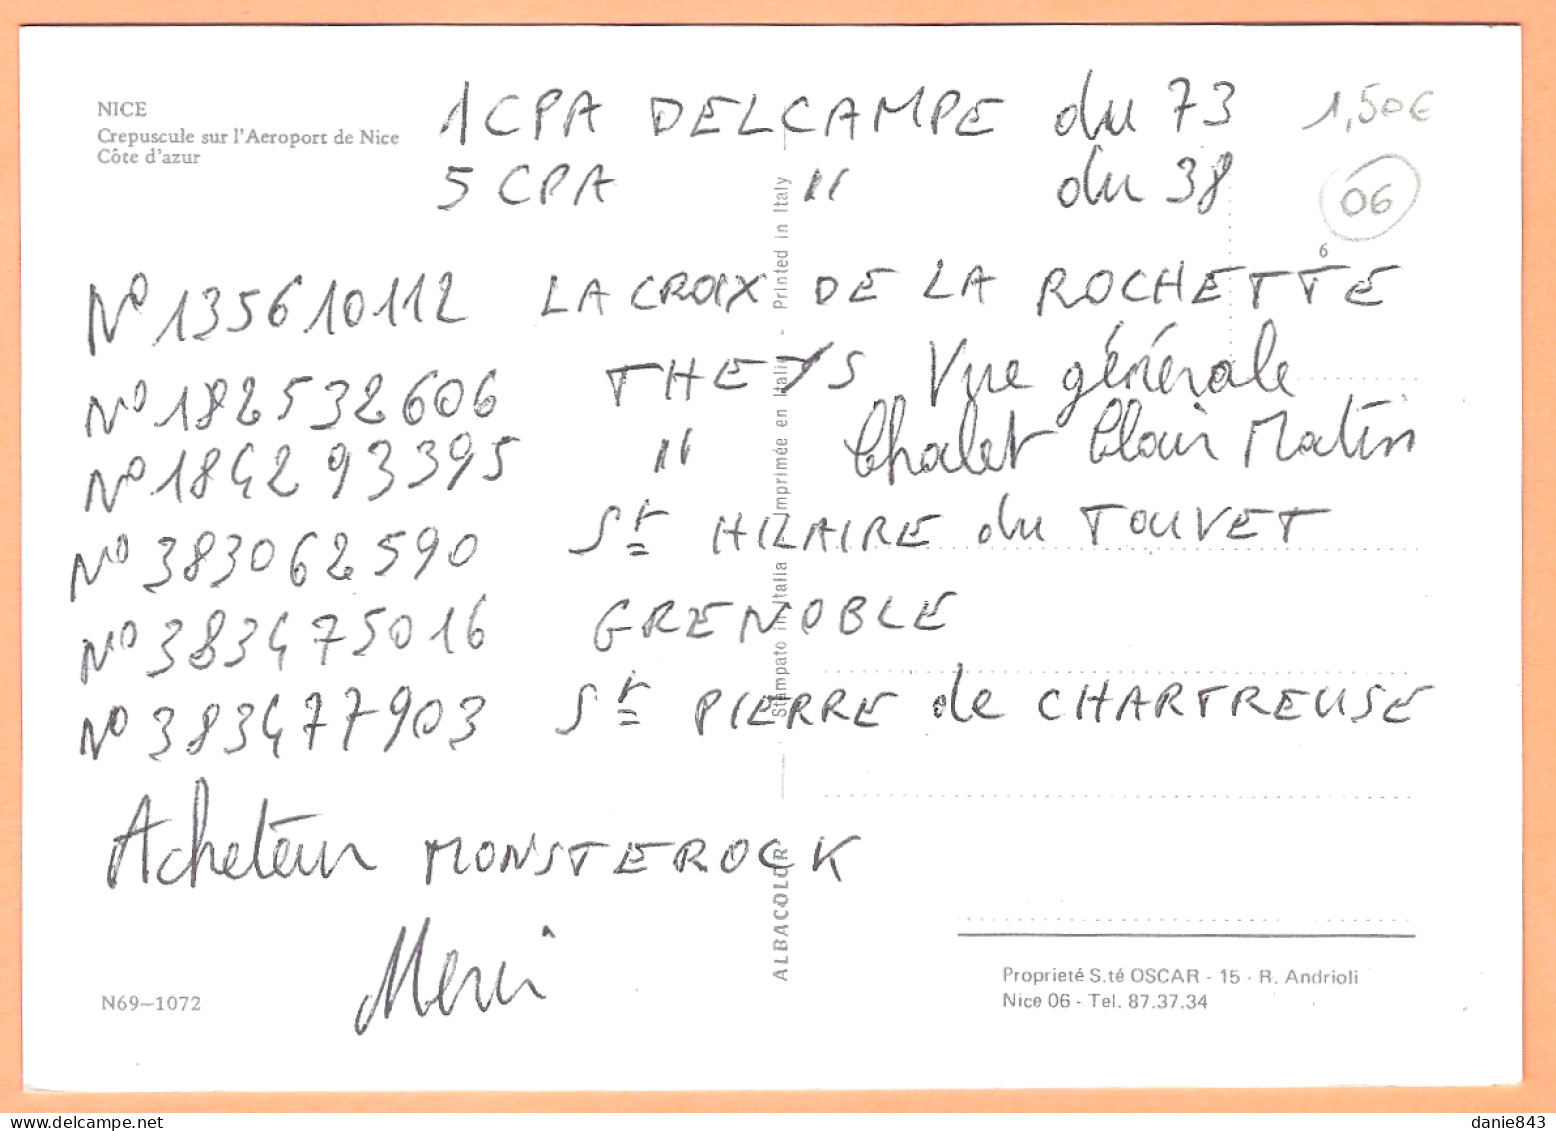 NICE
Crepuscule sur l'Aeroport de Nice
Côte d'azur
1 CPA DELCAMPE du 73
1,50€
5 CPA " du 38
06
6
N° 135610112 LA CROIX DE LA ROCHETTE
N° 182532606 THEYS Vue générale
N° 184293395 " Chalet Clair Matin
N° 383062590 St HILAIRE du TOUVET
N° 383475016 GRENOBLE
N° 383477903 St PIERRE de CHARTREUSE
Acheteur MONSTEROCK
Merci
ALBACOLOR Stampato in Italia - Imprimée en Italie - Printed in Italy
N69-1072
Proprieté S.té OSCAR - 15 - R. Andrioli
Nice 06 - Tel. 87.37.34
danie843